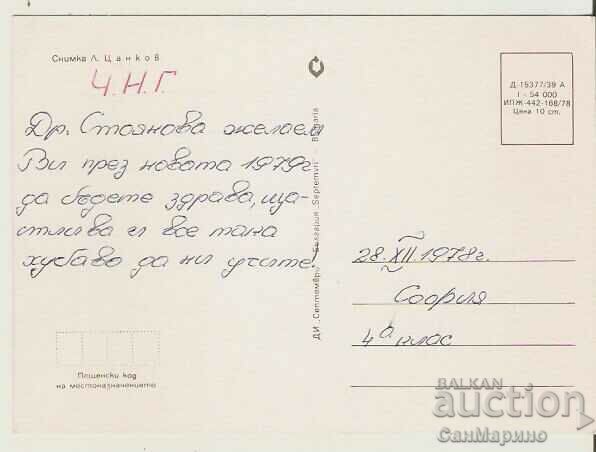 Снимка Л. Цанков
Ч.Н.Г.
Др. Стоянова желаем
Ви през новата 1979г
да бъдете здрава, ща-
стлива и все така
хубаво да ни учите!
Пощенски код
на местоназначението
ДИ „Септември“ България „Septemvri“ – Bulgaria
Д-15377/39 А
I - 54 000
ИПЖ-442-168/78
Цена 10 ст.
28.XII 1978г.
София
4а клас
BALKAN
auction
СанМарино